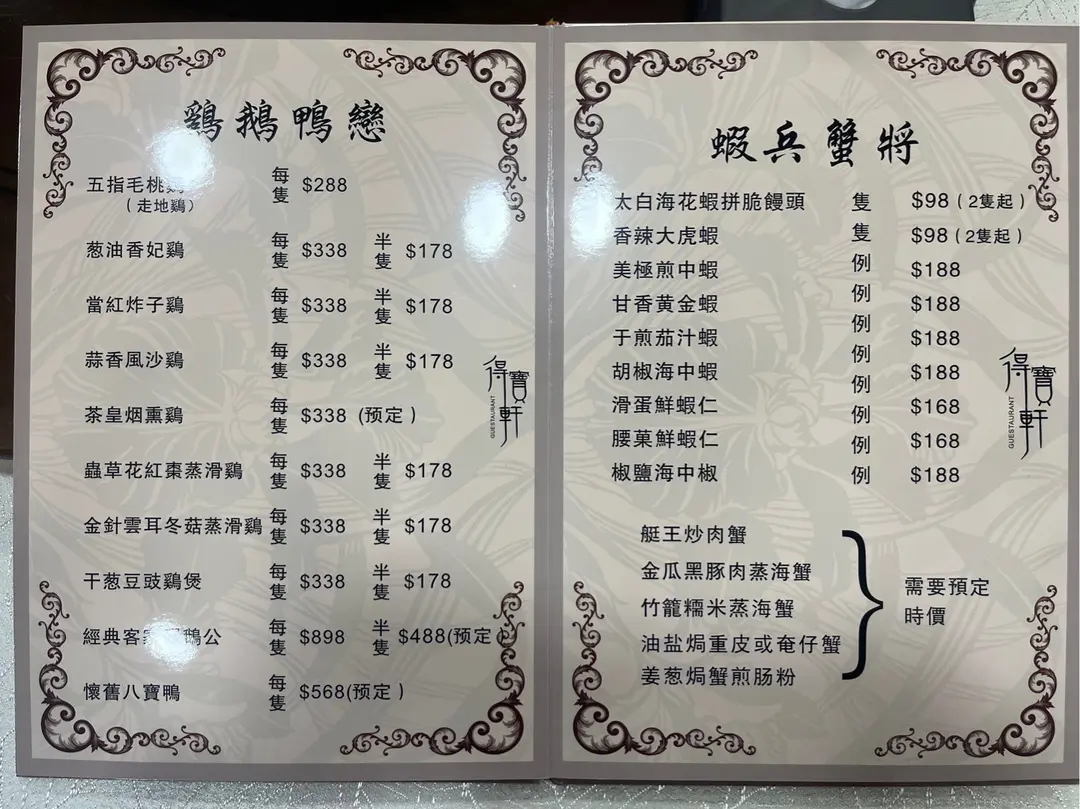 鷄鵝鴨戀
五指毛桃 每隻 $288
（走地鷄）
葱油香妃鷄 每隻 $338 半隻 $178
當紅炸子鷄 每隻 $338 半隻 $178
蒜香風沙鷄 每隻 $338 半隻 $178
茶皇烟熏鷄 每隻 $338 (预定）
蟲草花紅棗蒸滑鷄 每隻 $338 半隻 $178
金針雲耳冬菇蒸滑鷄 每隻 $338 半隻 $178
干葱豆豉鷄煲 每隻 $338 半隻 $178
經典客 鵝公 每隻 $898 半隻 $488(预定）
懷舊八寶鴨 每隻 $568(预定）
得寶軒
GUESTAURANT
蝦兵蟹將
太白海花蝦拼脆饅頭 隻 $98（2隻起）
香辣大虎蝦 隻 $98（2隻起）
美極煎中蝦 例 $188
甘香黄金蝦 例 $188
干煎茄汁蝦 例 $188
胡椒海中蝦 例 $188
滑蛋鮮蝦仁 例 $168
腰菓鮮蝦仁 例 $168
椒鹽海中椒 例 $188
艇王炒肉蟹
金瓜黑豚肉蒸海蟹
竹籠糯米蒸海蟹
油盐焗重皮或奄仔蟹
姜葱焗蟹煎肠粉
需要預定
時價
得寶軒
GUESTAURANT